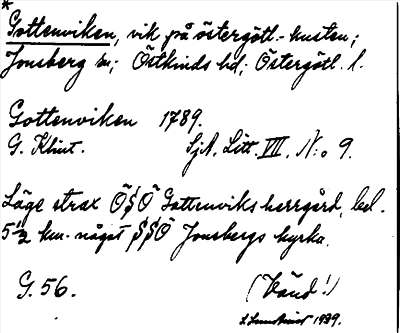 *
Gottenviken, vik på östergötl.-kusten;
Jonsberg sn; Östkinds hd; Östergötl. l.
Gottenviken 1789.
G. Klint. SjA. Litt. VII. N:o 9.
Läge strax Ö$Ö Gottenviks herrgård, bel.
5 1/2 km. något $$Ö Jonsbergs kyrka.
G. 56. (Vänd!)
1939.